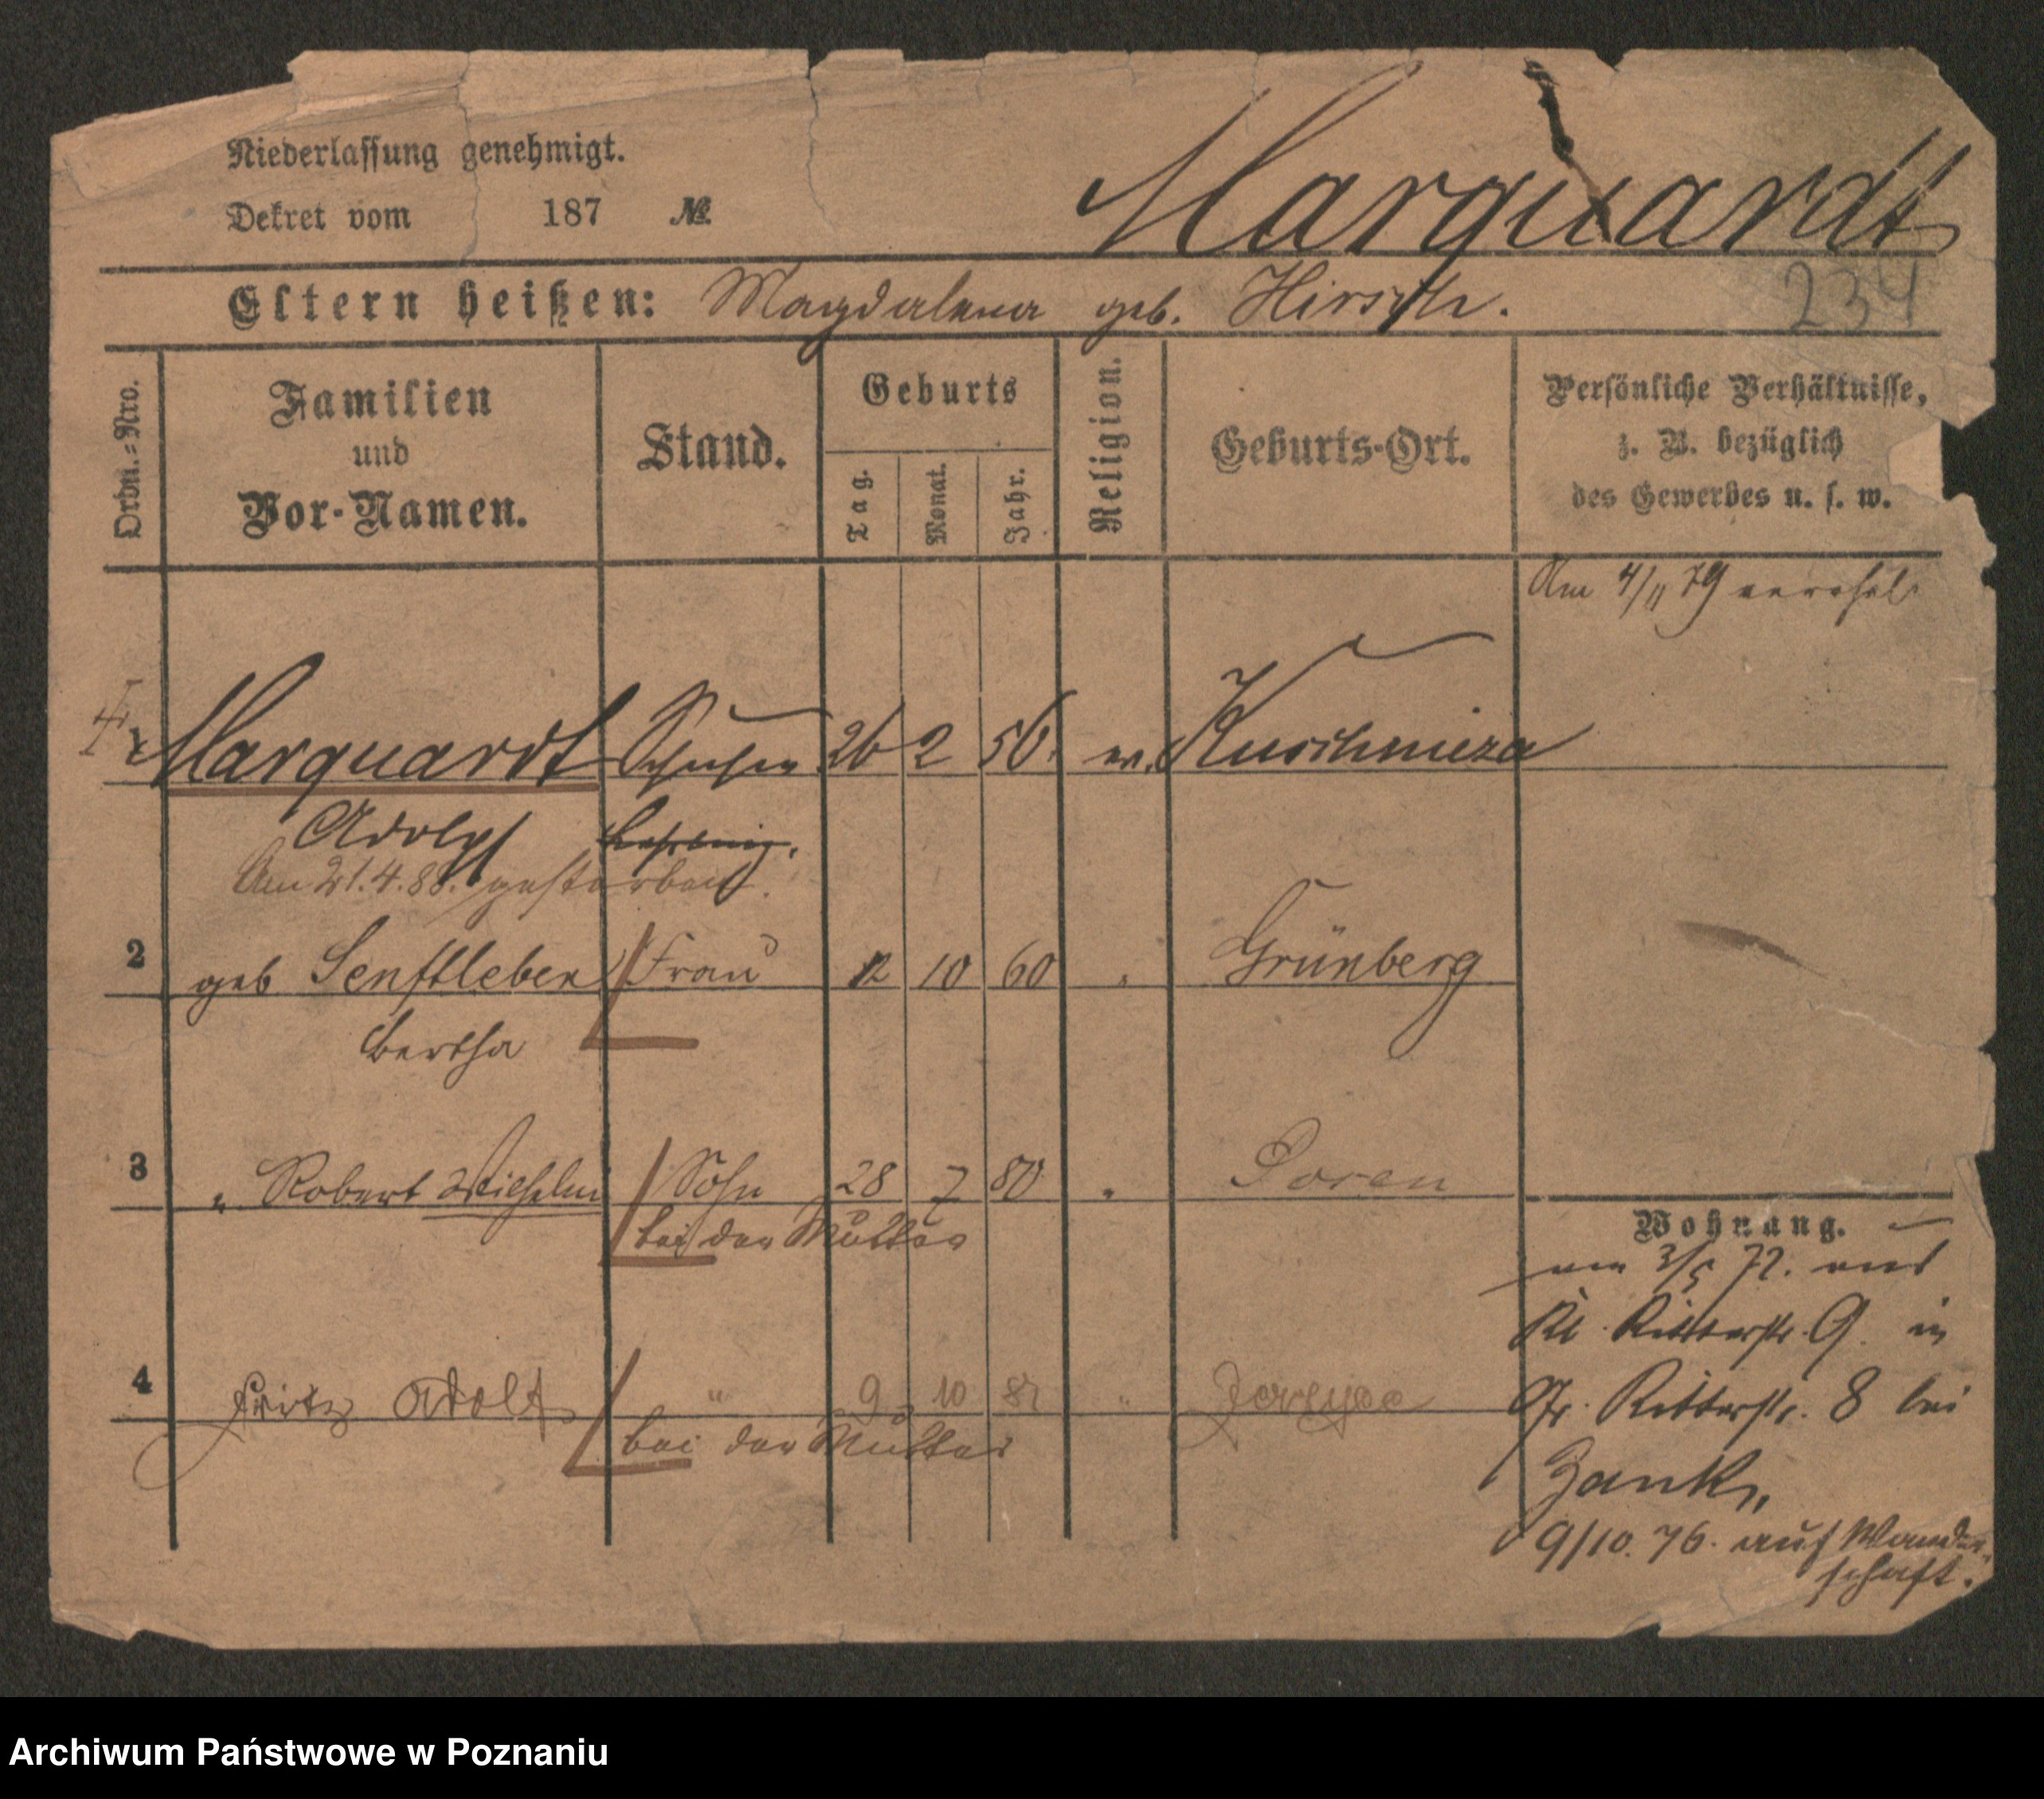 Niederlassung genehmigt.
Dekret vom 187 №
Marquardt
Eltern heißen: Magdalena geb. Hirsch.
234
Ordn.-Nro.
Familien und Vor-Namen.
Stand.
Geburts
Tag.
Monat.
Jahr.
Religion.
Geburts-Ort.
Persönliche Verhältnisse,
z. B. bezüglich
des Gewerbes u. s. w.
Am 4/11 79 verehel.
Marquardt 26 2 56. ev. Kuschmierza
Adolf
Am 21.4.88. gestorben.
2 geb Senftleben Frau 12 10 60 " Grünberg
Bertha
3 " Robert Wilhelm Sohn 28 7 80 " Posen
bei der Mutter
4 Fritz Adolf " 9 10 82 " Jersyce
bei der Mutter
Wohnung.
am 3/5 72. aus
Kl. Ritterstr. 9. in
Gr. Ritterstr. 8 bei
Zank,
9/10. 76. auf Wander-
schaft.
Archiwum Państwowe w Poznaniu